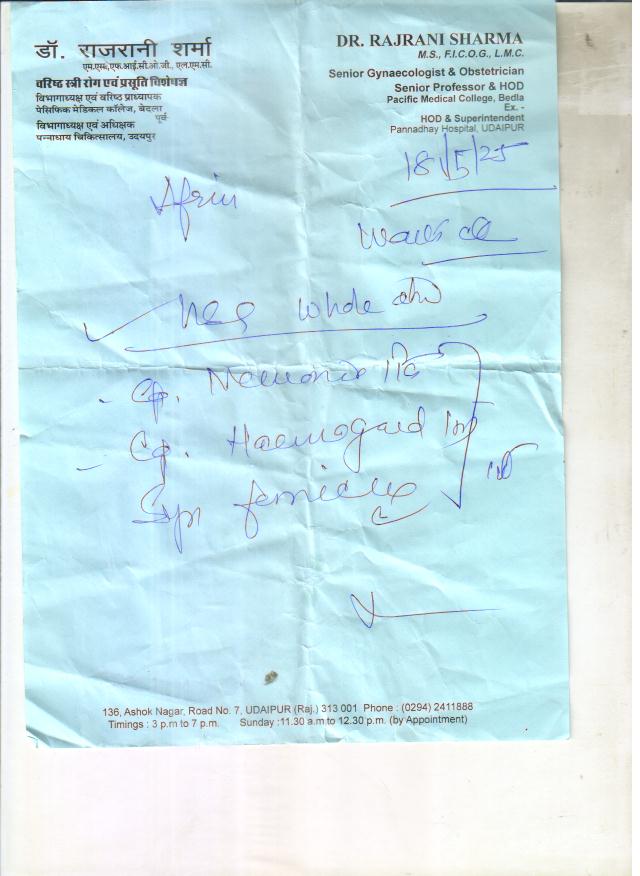 डॉ. राजरानी शर्मा
एम.एस., एफ.आई.सी.ओ.जी., एल.एम.सी.
वरिष्ठ स्त्री रोग एवं प्रसूति विशेषज्ञ
विभागाध्यक्ष एवं वरिष्ठ प्राध्यापक
पेसिफिक मेडिकल कॉलेज, बेदला
पूर्व-
विभागाध्यक्ष एवं अधिक्षक
पन्नाधाय चिकित्सालय, उदयपुर
DR. RAJRANI SHARMA
M.S., F.I.C.O.G., L.M.C.
Senior Gynaecologist & Obstetrician
Senior Professor & HOD
Pacific Medical College, Bedla
Ex. -
HOD & Superintendent
Pannadhay Hospital, UDAIPUR
18/5/25
Afrin
whole
Cap.
Cap. Haemogard
Syp
136, Ashok Nagar, Road No. 7, UDAIPUR (Raj.) 313 001 Phone : (0294) 2411888
Timings : 3 p.m to 7 p.m. Sunday :11.30 a.m to 12.30 p.m. (by Appointment)